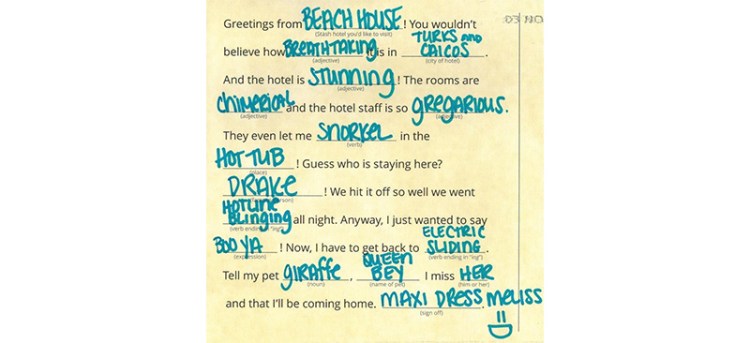 Greetings from BEACH HOUSE! You wouldn't
(Stash hotel you'd like to visit)
believe how BREATHTAKING it is in TURKS AND CAICOS.
(adjective) (city of hotel)
And the hotel is STUNNING! The rooms are
(adjective)
CHIMERICAL and the hotel staff is so GREGARIOUS.
(adjective) (adjective)
They even let me SNORKEL in the
(verb)
HOT TUB! Guess who is staying here?
(place)
DRAKE! We hit it off so well we went
person)
HOTLINE BLINGING all night. Anyway, I just wanted to say
(verb ending in "ing")
BOO YA! Now, I have to get back to ELECTRIC SLIDING.
(expression) (verb ending in "ing")
Tell my pet GIRAFFE, QUEEN BEY I miss HER
(noun) (name of pet) (him or her)
and that I'll be coming home. MAXI DRESS, MELISS
(sign off)